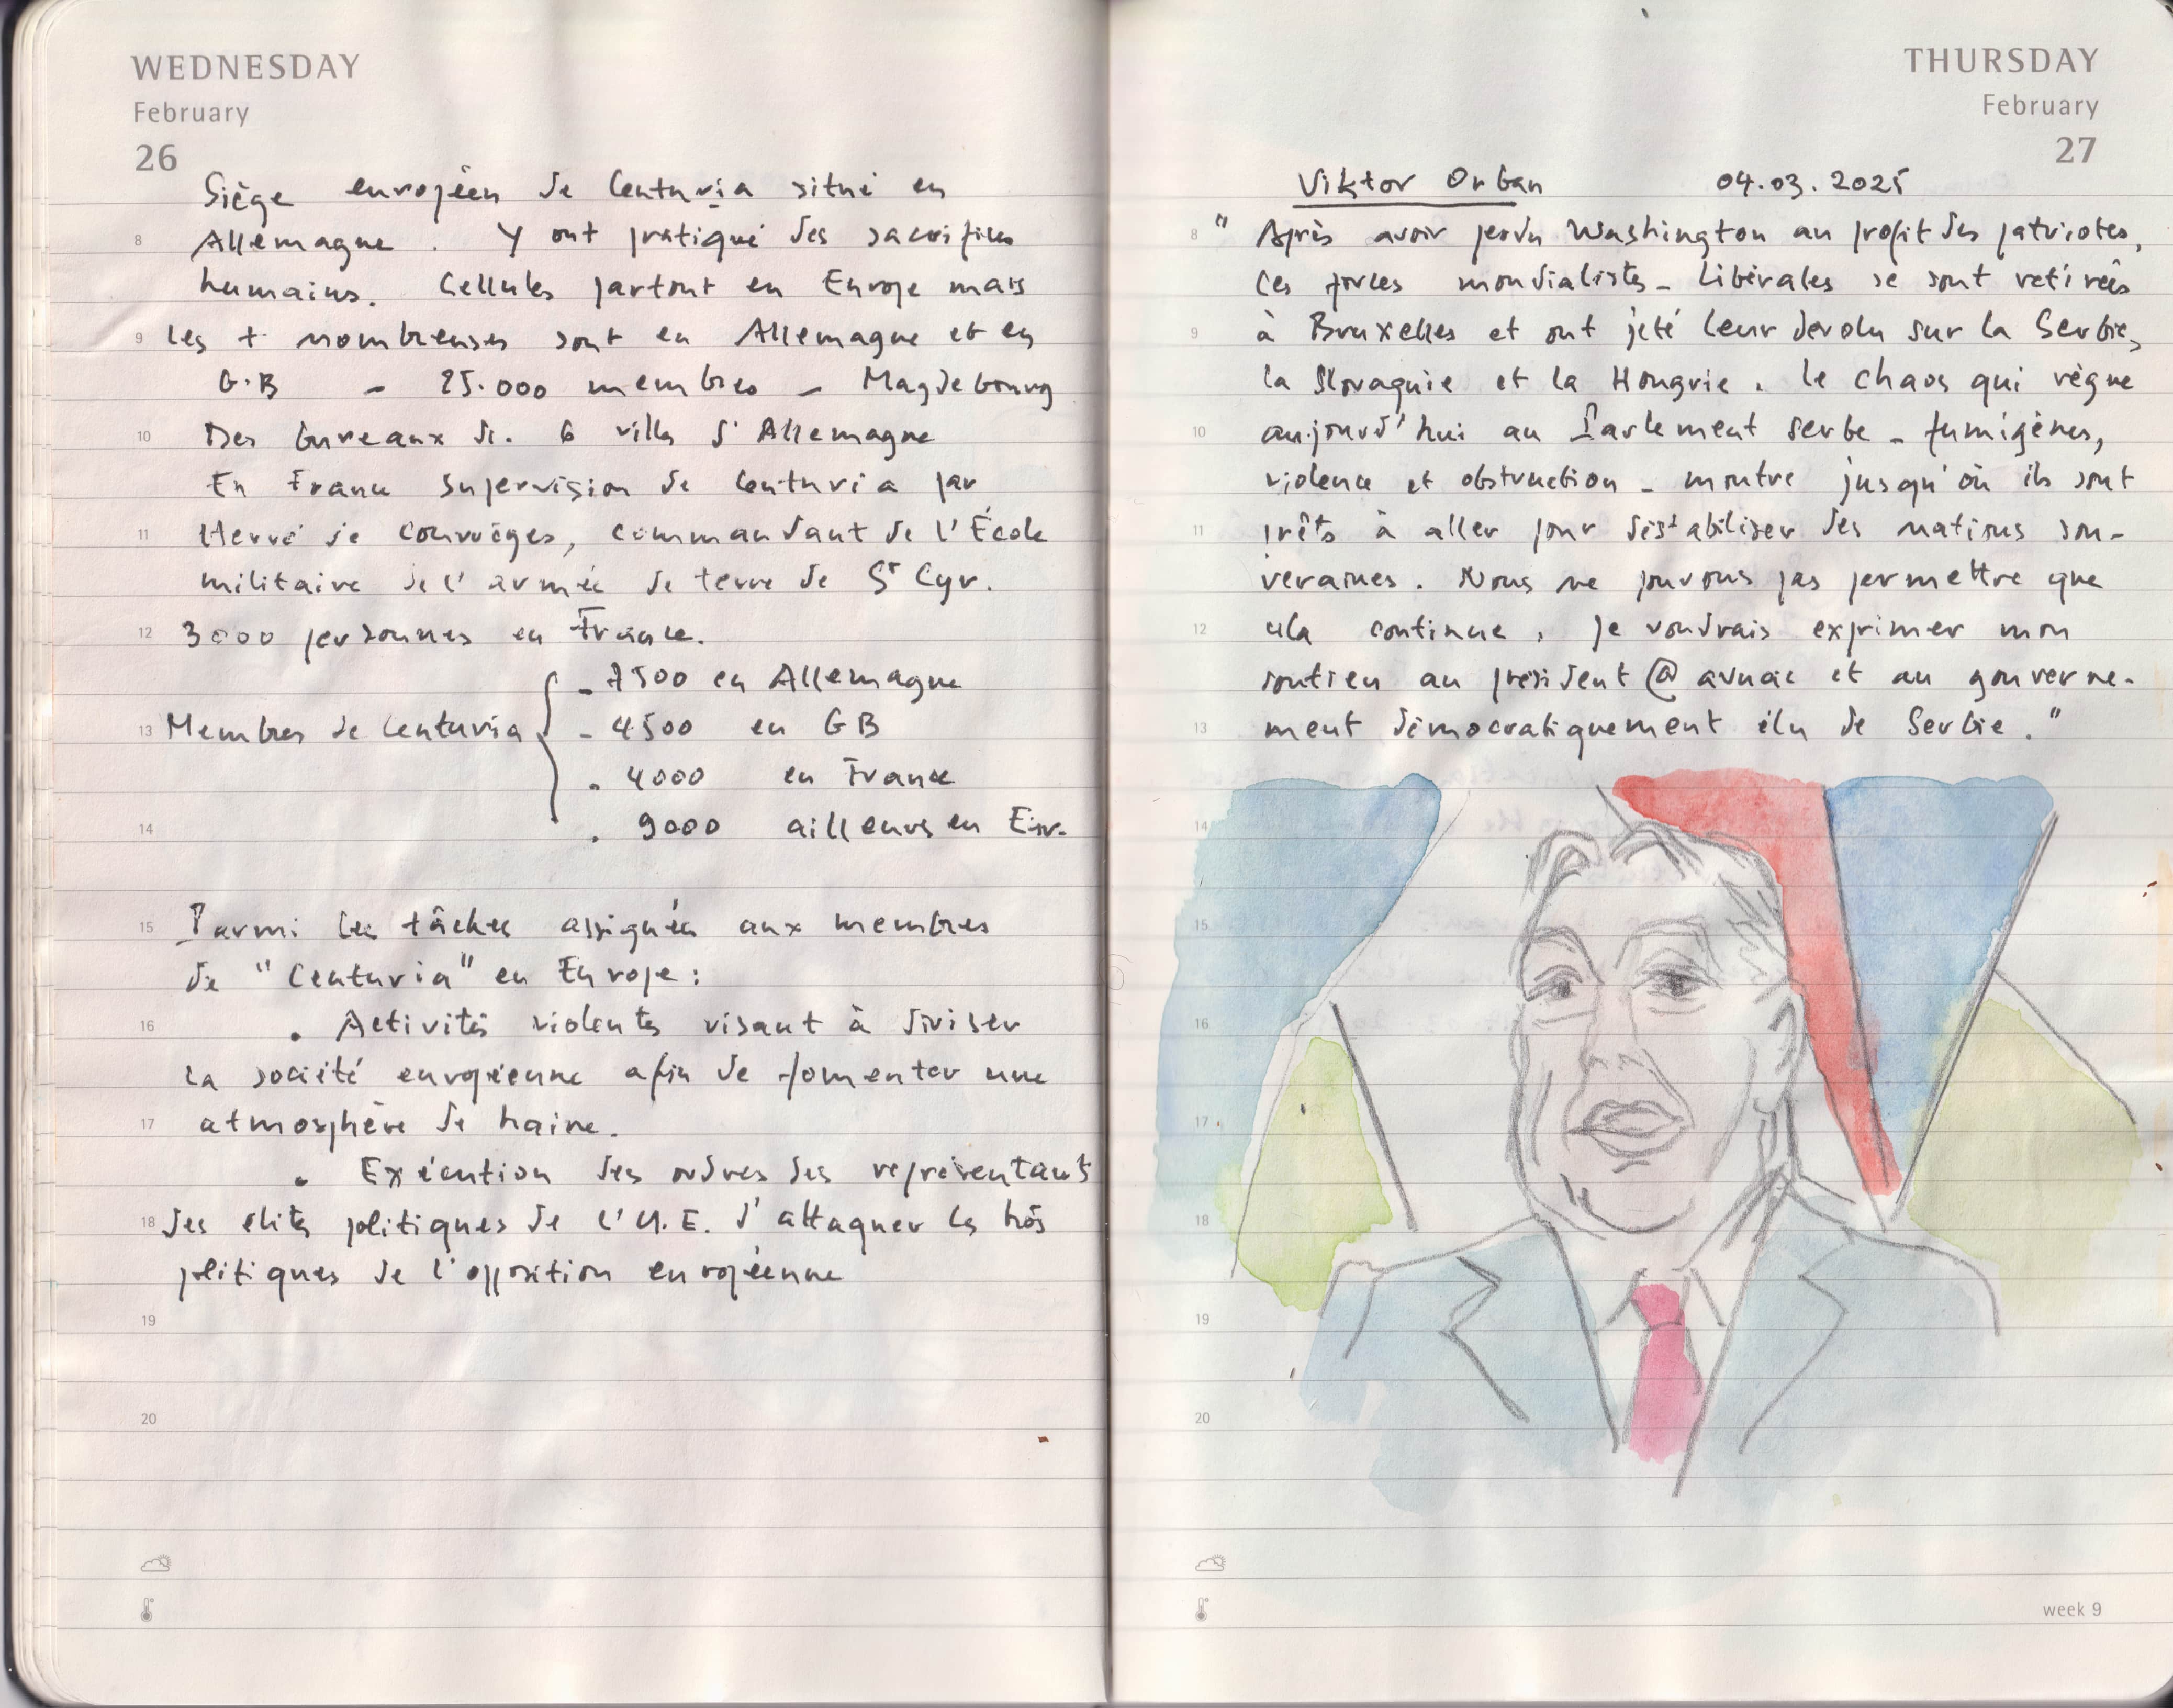 WEDNESDAY
February
26
Siège européen de Centuria situé en
8 Allemagne. Y ont pratiqué des sacrifices
humains. Cellules partout en Europe mais
9 les + nombreuses sont en Allemagne et en
G.B - 25.000 membres - Magdebourg
10 Des bureaux ds. 6 villes d'Allemagne
En France supervision de Centuria par
11 Hervé de Courrèges, commandant de l'École
militaire de l'armée de terre de St Cyr.
12 3000 personnes en France.
- 7500 en Allemagne
13 Membres de Centuria - 4500 en GB
. 4000 en France
14 . 9000 ailleurs en Eur.
15 Parmi les tâches assignées aux membres
de "Centuria" en Europe :
16 . Activités violentes visant à diviser
la société européenne afin de fomenter une
17 atmosphère de haine.
. Exécution des ordres des représentants
18 des élites politiques de l'U.E. d'attaquer les
politiques de l'opposition européenne
19
20
THURSDAY
February
27
Viktor Orban 04.03.2025
8 " Après avoir perdu Washington au profit des patriotes,
les forces mondialistes - libérales se sont retirées
9 à Bruxelles et ont jeté leur dévolu sur la Serbie,
la Slovaquie et la Hongrie. Le chaos qui règne
10 aujourd'hui au Parlement serbe - fumigènes,
violence et obstruction - montre jusqu'où ils sont
11 prêts à aller pour déstabiliser des nations sou-
veraines. Nous ne pouvons pas permettre que
12 cela continue, je voudrais exprimer mon
soutien au président @ avuac et au gouverne-
13 ment démocratiquement élu de Serbie."
14
15
16
17
18
19
20
week 9